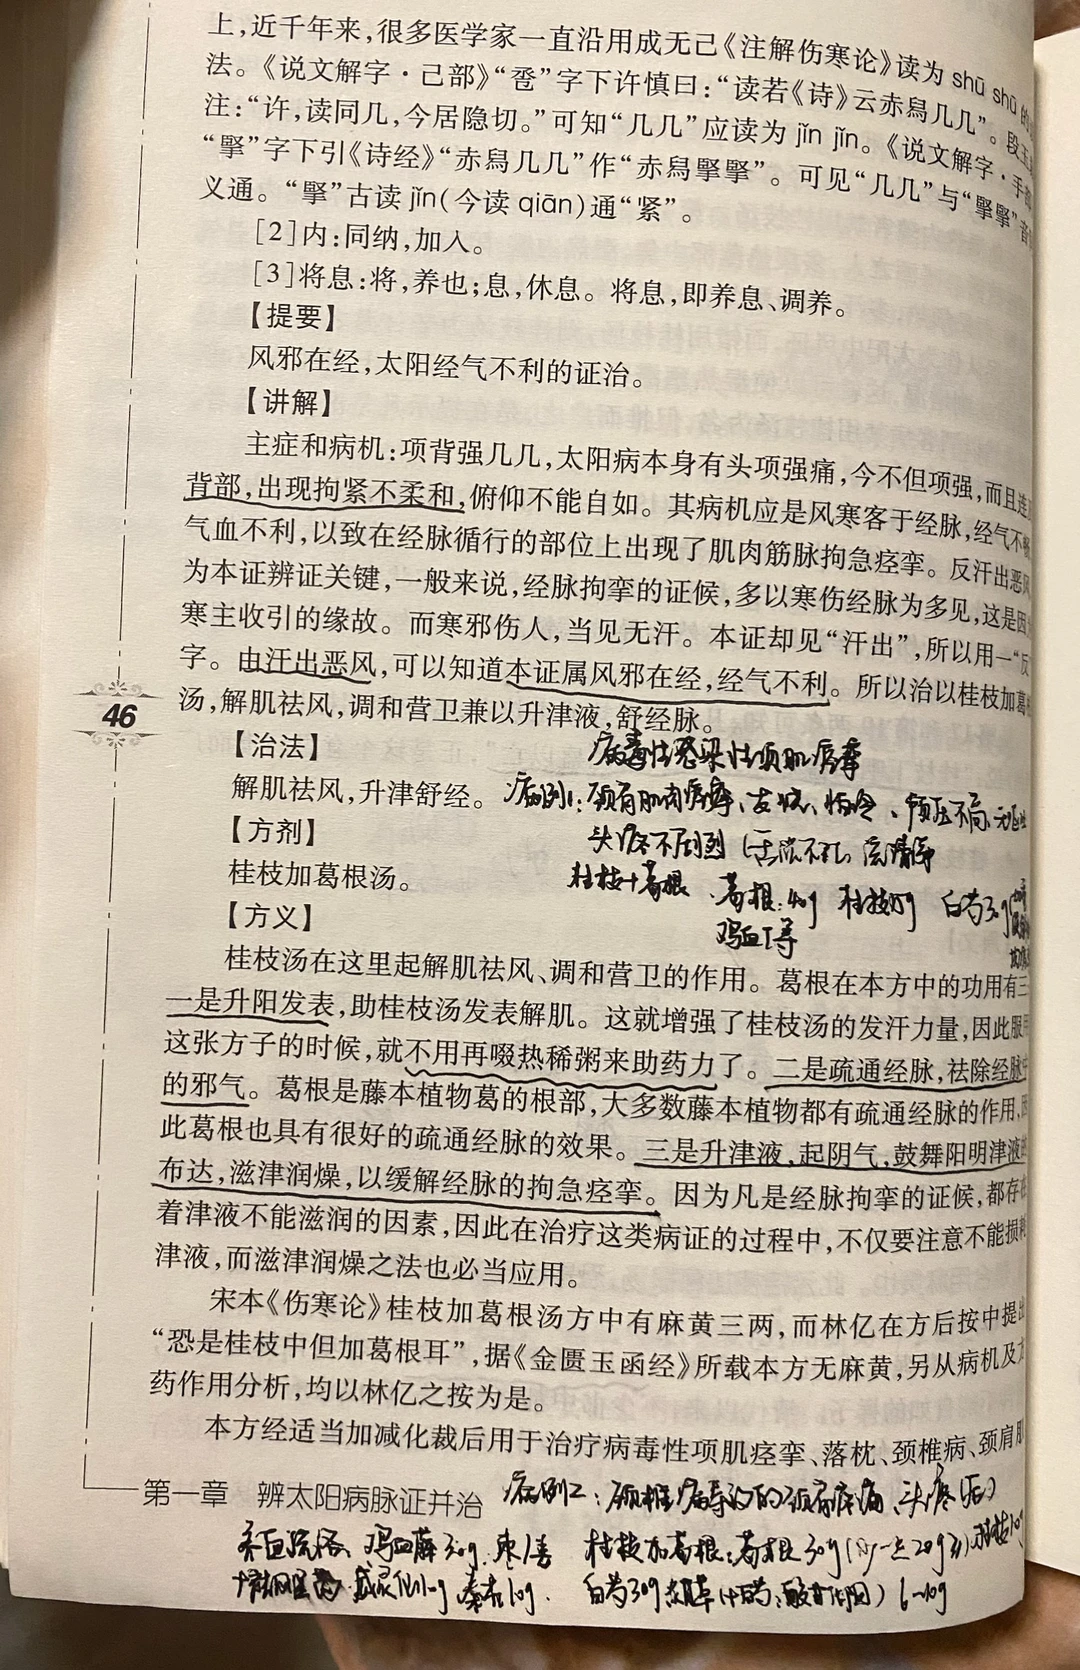 上,近千年来,很多医学家一直沿用成无己《注解伤寒论》读为 shū shū 的
法。《说文解字·己部》“卺”字下许慎曰:“读若《诗》云赤舄几几”。段玉
注:“许,读同几,今居隐切。”可知“几几”应读为 jǐn jǐn。《说文解字·手部
“掔”字下引《诗经》“赤舄几几”作“赤舄掔掔”。可见“几几”与“掔掔”音
义通。“掔”古读 jǐn(今读 qiān)通“紧”。
[2]内:同纳,加入。
[3]将息:将,养也;息,休息。将息,即养息、调养。
【提要】
风邪在经,太阳经气不利的证治。
【讲解】
主症和病机:项背强几几,太阳病本身有头项强痛,今不但项强,而且连
背部,出现拘紧不柔和,俯仰不能自如。其病机应是风寒客于经脉,经气不
气血不利,以致在经脉循行的部位上出现了肌肉筋脉拘急痉挛。反汗出恶风
为本证辨证关键,一般来说,经脉拘挛的证候,多以寒伤经脉为多见,这是因
寒主收引的缘故。而寒邪伤人,当见无汗。本证却见“汗出”,所以用一“反
字。由汗出恶风,可以知道本证属风邪在经,经气不利。所以治以桂枝加葛
汤,解肌祛风,调和营卫兼以升津液,舒经脉。
46
【治法】
病毒性感染性项肌痉挛
解肌祛风,升津舒经。
病例1:颈肩肌肉痉挛、发烧、怕冷、颅压不高、无
头疼不剧烈
【方剂】
桂枝+葛根、葛根:40g 桂枝15g 白芍30g
桂枝加葛根汤。
鸡血
【方义】
桂枝汤在这里起解肌祛风、调和营卫的作用。葛根在本方中的功用有三
一是升阳发表,助桂枝汤发表解肌。这就增强了桂枝汤的发汗力量,因此服用
这张方子的时候,就不用再啜热稀粥来助药力了。二是疏通经脉,祛除经脉
的邪气。葛根是藤本植物葛的根部,大多数藤本植物都有疏通经脉的作用,因
此葛根也具有很好的疏通经脉的效果。三是升津液,起阴气,鼓舞阳明津液
布达,滋津润燥,以缓解经脉的拘急痉挛。因为凡是经脉拘挛的证候,都存在
着津液不能滋润的因素,因此在治疗这类病证的过程中,不仅要注意不能损
津液,而滋津润燥之法也必当应用。
宋本《伤寒论》桂枝加葛根汤方中有麻黄三两,而林亿在方后按中提出
“恐是桂枝中但加葛根耳”,据《金匮玉函经》所载本方无麻黄,另从病机及方
药作用分析,均以林亿之按为是。
本方经适当加减化裁后用于治疗病毒性项肌痉挛、落枕、颈椎病、颈肩肌
第一章 辨太阳病脉证并治
病例2:颈椎病导致的颈肩疼痛、头疼(后)
养血疏络、鸡血藤30g
桂枝加葛根:葛根30g 桂枝10g
威灵仙10g 秦艽10g
白芍30g